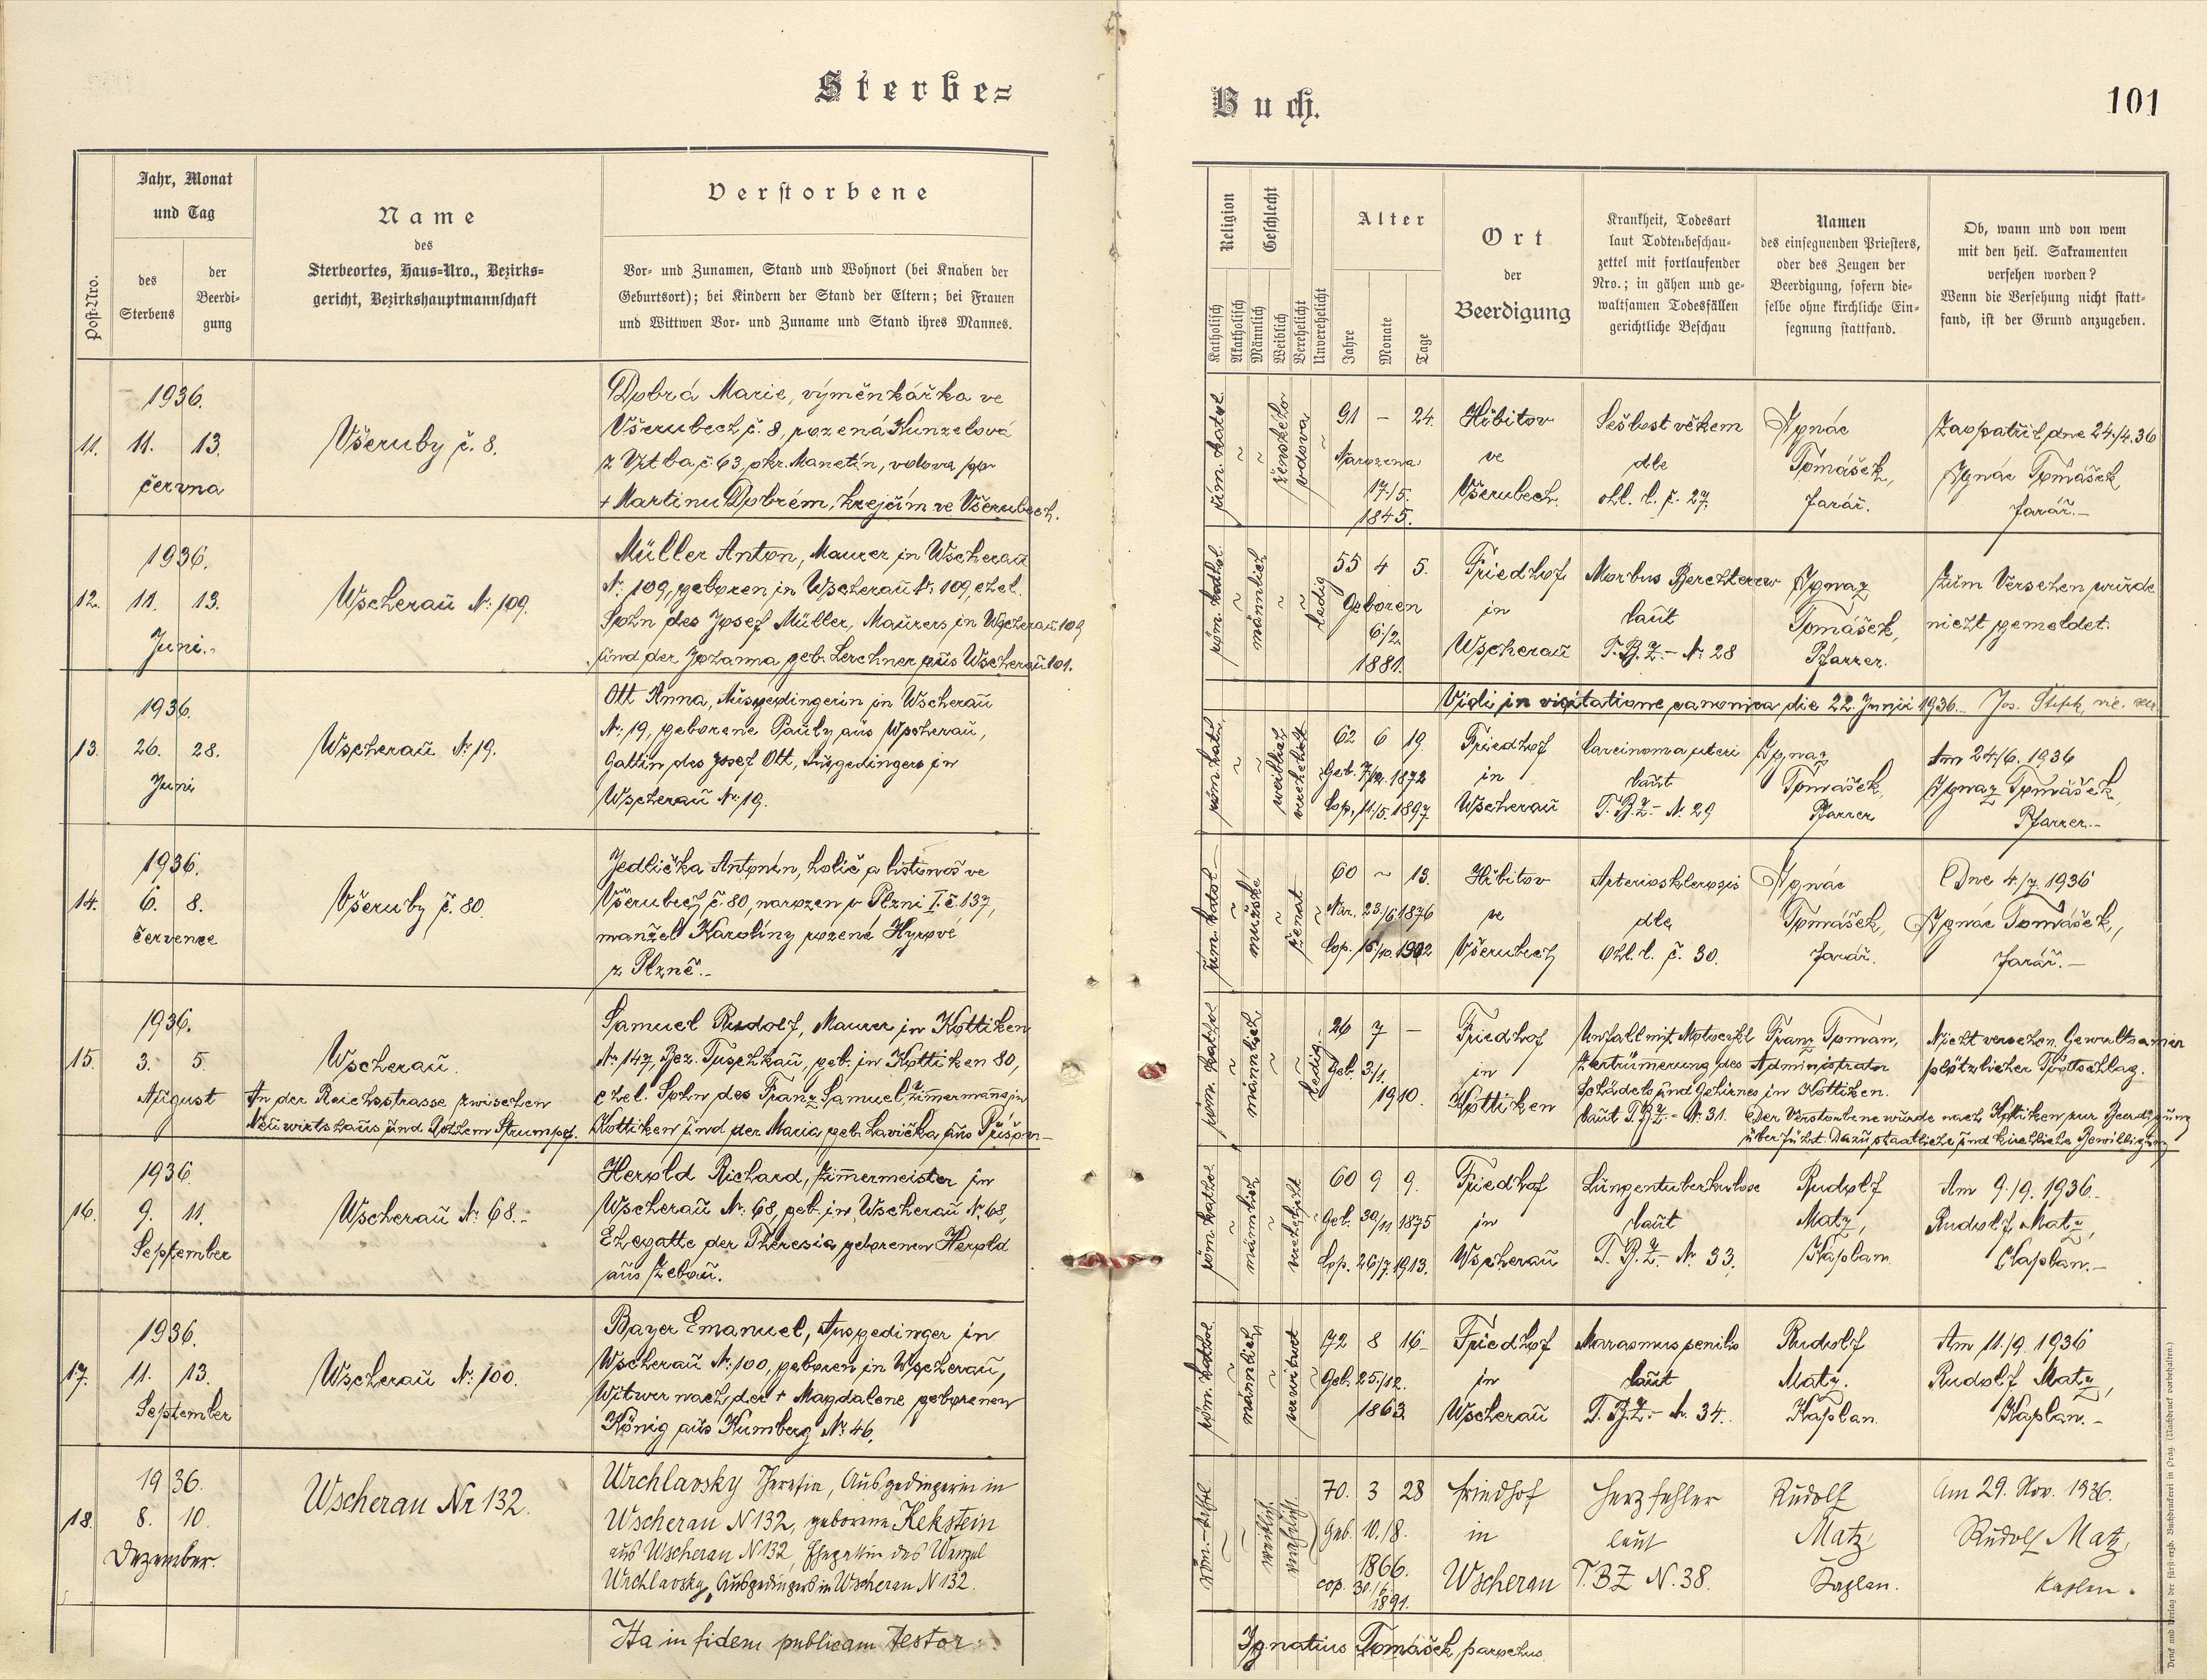 Sterbe=
Buch.
101
Post-Nro.
Jahr, Monat
und Tag
des
Sterbens
der
Beerdi-
gung
Name
des
Sterbeortes, Haus-Nro., Bezirks-
gericht, Bezirkshauptmannschaft
Verstorbene
Vor- und Zunamen, Stand und Wohnort (bei Knaben der
Geburtsort); bei Kindern der Stand der Eltern; bei Frauen
und Wittwen Vor- und Zuname und Stand ihres Mannes.
Religion
Katholisch
Akatholisch
Geschlecht
Männlich
Weiblich
Verehelicht
Unverehelicht
Alter
Jahre
Monate
Tage
Ort
der
Beerdigung
Krankheit, Todesart
laut Todtenbeschau-
zettel mit fortlaufender
Nro.; in gähen und ge-
waltsamen Todesfällen
gerichtliche Beschau
Namen
des einsegnenden Priesters,
oder des Zeugen der
Beerdigung, sofern die-
selbe ohne kirchliche Ein-
segnung stattfand.
Ob, wann und von wem
mit den heil. Sakramenten
versehen worden?
Wenn die Versehung nicht statt-
fand, ist der Grund anzugeben.
11.
1936.
11. 13.
června
Všeruby č. 8.
Dobrá Marie, výměnkářka ve
Všerubech č. 8, rozená Kunzelová
z Vrtba č. 63, okr. Manetín, vdova po
+ Martinu Dobrém, krejčím ve Všerubech.
řím. katol.
ženského
vdova
91 – 24.
Narozena
17./5.
1845.
Hřbitov
ve
Všerubech.
Sešlost věkem
dle
ohl. l. č. 27.
Ignác
Tomášek,
farář.
Zaopatřil dne 24./4. 36
Ignác Tomášek
farář.–
12.
1936.
11. 13.
Juni.
Wscherau Nr. 109.
Müller Anton, Maurer in Wscherau
Nr. 109, geboren in Wscherau Nr. 109, ehel.
Sohn des Josef Müller, Maurers in Wscherau 109
und der Johanna geb. Lerchner aus Wscherau 101.
röm. kathol.
männlich
ledig
55 4 5.
Geboren
6./2.
1881.
Friedhof
in
Wscherau
Morbus Berchterew
laut
T.B.Z.– Nr. 28
Ignaz
Tomášek,
Pfarrer.
Zum Versehen wurde
nicht gemeldet.
Vidi in visitatione canonica die 22. Junii 1936. Jos.
13.
1936.
26. 28.
Juni
Wscherau Nr. 19.
Ott Anna, Ausgedingerin in Wscherau
Nr. 19, geborene Pauly aus Wscherau,
Gattin des Josef Ott, Ausgedingers in
Wscherau Nr. 19.
röm. kath.
weiblich
verehelicht
62 6 19
Geb. 7/12. 1872
Cop. 11/5. 1897
Friedhof
in
Wscherau
Carcinoma uteri
laut
T.B.Z.– Nr. 29
Ignaz
Tomášek,
Pfarrer
Am 24/6. 1936
Ignaz Tomášek,
Pfarrer.–
14.
1936.
6. 8.
července
Všeruby č. 80.
Jedlička Antonín, holič a listonoš ve
Všerubech č. 80, narozen v Plzni I. č. 137,
manžel Karolíny rozené Hyrové
z Plzně.–
řím. katol.
mužské
ženat
60 ~ 13.
Nar. 23/6 1876
Cop. 16/10. 1902
Hřbitov
ve
Všerubech
Arteriosklerosis
dle
Ohl. l. č. 30.
Ignác
Tomášek,
farář.
Dne 4./7. 1936
Ignác Tomášek,
farář.–
15.
1936.
3. 5.
August
Wscherau.
An der Reichsstrasse zwischen
Neuwirtshaus und Gohem Strumpf.
Samuel Rudolf, Maurer in Kottiken
Nr. 147, Bez. Tuschkau, geb. in Kottiken 80,
ehel. Sohn des Franz Samuel, Zimmermanns in
Kottiken und der Maria geb. Lavička aus
röm. kathol.
männlich
ledig
26 7 –
Geb. 3/1.
1910.
Friedhof
in
Kottiken
Unfall mit Motocykl
Zertrümmerung des
Schädels und Gehirnes
laut T.B.Z.– Nr. 31.
Franz Toman,
Administrator
in Kottiken.
Nicht versehen. Gewaltsamer
plötzlicher Tottschlag.
Der Verstorbene wurde nach Kottiken zur Beerdigung
überführt. Dazu staatliche und kirchliche Bewilligung
16.
1936.
9. 11.
September
Wscherau Nr. 68.–
Herold Richard, Zimmermeister in
Wscherau Nr. 68, geb. in Wscherau Nr. 68,
Ehegatte der Theresia geborenen Herold
aus Zebau.
röm. kathol.
männlich
verehelicht
60 9 9.
Geb. 30/11. 1875
Cop. 26/7. 1913.
Friedhof
in
Wscherau
Lungentuberkulose
laut
T.B.Z.– Nr. 33.
Rudolf
Matz,
Kaplan
Am 9./9. 1936.–
Rudolf Matz,
Kaplan.–
17.
1936.
11. 13.
September
Wscherau Nr. 100.
Bayer Emanuel, Ausgedinger in
Wscherau Nr. 100, geboren in Wscherau,
Witwer nach der + Magdalene geborenen
König aus Kumberg Nr. 46.
röm. kathol.
männlich
verwitwet
72 8 16
Geb. 25./12.
1863.
Friedhof
in
Wscherau
Marasmus senilis
laut
T.B.Z.– Nr. 34.
Rudolf
Matz.
Kaplan.
Am 11./9. 1936
Rudolf Matz,
Kaplan.–
18.
1936.
8. 10.
Dezember.
Wscherau Nr 132.
Wrchlavsky Theresia, Ausgedingerin in
Wscherau N 132, geborene Kekstein
aus Wscherau N 132, Ehegattin des Wenzel
Wrchlavsky, Ausgedingers in Wscherau N 132.
röm.-kathol.
weiblich
verehelicht.
70. 3 28
Geb. 10./8.
1866.
cop. 30./6.
1891.
Friedhof
in
Wscherau
Herzfehler
laut
T.BZ N. 38.
Rudolf
Matz,
Kaplan.
Am 29. Nov. 1936.
Rudolf Matz,
Kaplan.
Ita in fidem publicam testor:
Ignatius Tomášek, parochus.
Druck und Verlag der fürst-erzb. Buchdruckerei in Prag. (Nachdruck vorbehalten.)